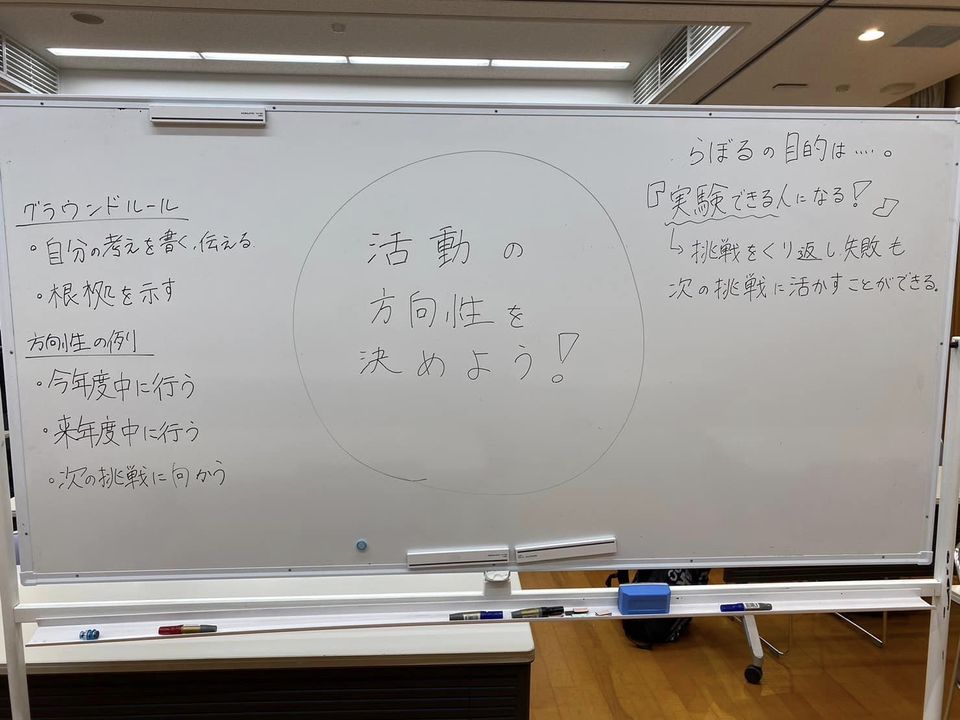 グラウンドルール
・自分の考えを書く、伝える
・根拠を示す
方向性の例
・今年度中に行う
・来年度中に行う
・次の挑戦に向かう
活動の
方向性を
決めよう!
らぼるの目的は‥‥。
『実験できる人になる!』
↳挑戦をくり返し失敗も
次の挑戦に活かすことができる。